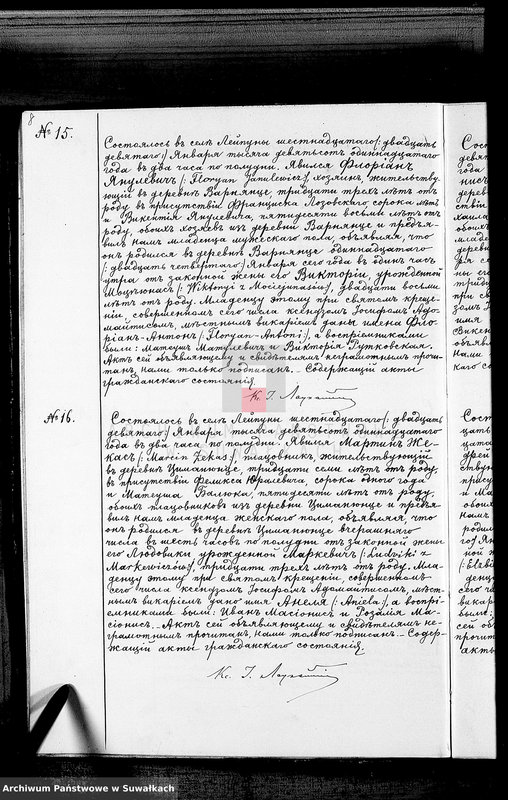 8
№ 15.
Состоялось въ селѣ Лейпуны шестнадцатаго /: двадцать
девятаго :/ Января тысяча девятьсотъ одиннадцатаго
года въ два часа по полудни. Явился Флоріанъ
Янулевичъ /: Floryan Janulewicz :/, хозяинъ, жительству-
ющій въ деревнѣ Варнянце, тридцати трехъ лѣтъ отъ
роду, въ присутствіи Франциска Лозовскаго сорока лѣтъ
и Викентія Янулевича, пятидесяти восьми лѣтъ отъ
роду, обоихъ хозяевъ изъ деревни Варнянце и предъя-
вилъ намъ младенца мужескаго пола, объявляя, что
онъ родился въ деревнѣ Варнянце одиннадцатаго
/: двадцать четвертаго :/ Января сего года въ одинъ часъ
утра отъ законной жены его Викторіи, урожденной
/: Wiktoryi z :/, двадцати восьми
лѣтъ отъ роду. Младенцу этому при святомъ креще-
ніи, совершенномъ сего числа ксендзомъ Іосифомъ Адо-
майтисомъ, мѣстнымъ викаріемъ даны имена Фло-
ріанъ-Антонъ /: Floryan-Antoni :/, а воспріемниками
были: Матеушъ Матулевичъ и Викторія Рутковская.
Актъ сей объявляющему и свидѣтелямъ неграмотнымъ прочи-
танъ, нами только подписанъ. - Содержащій акты
гражданскаго состоянія
Кс. І.
№ 16.
Состоялось въ селѣ Лейпуны шестнадцатаго /: двадцать
девятаго :/ Января тысяча девятьсотъ одиннадцатаго
года въ два часа по полудни. Явился Мартинъ Же-
касъ /: Marcin Żekas :/, плацовникъ, жительствующій
въ деревнѣ Циманюнце, тридцати семи лѣтъ отъ роду,
въ присутствіи Феликса Юралевича, сорока одного года
и Матеуша Балюка, пятидесяти лѣтъ отъ роду,
обоихъ плацовниковъ изъ деревни Циманюнце и предъя-
вилъ намъ младенца женскаго пола, объявляя, что
онъ родился въ деревнѣ Циманюнце вчерашняго
числа въ шесть часовъ по полудни отъ законной жены
его Людовики, урожденной Маркевичъ /: Ludwiki z
Markewiczów :/, тридцати трехъ лѣтъ отъ роду. Мла-
денцу этому при святомъ крещеніи, совершенномъ
сего числа ксендзомъ Іосифомъ Адомайтисомъ, мѣст-
нымъ викаріемъ дано имя Анеля /: Aniela :/, а воспрі-
емниками были: Иванъ Масіонисъ и Розалія Ма-
сіонисъ. - Актъ сей объявляющему и свидѣтелямъ не-
грамотнымъ прочитанъ, нами только подписанъ. - Содер-
жащій акты гражданскаго состоянія
Кс. І.
Archiwum Państwowe w Suwałkach